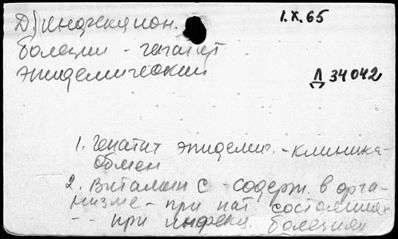 Д) инфекцион. 1.X.65
болезни - гепатит
эпидемический
Д 34042
1. Гепатит эпидемич. - клиника-
обмен
2. Витамин С - содерж. в орга-
низме - при пат. состояниях
- " - при инфекц. болезнях